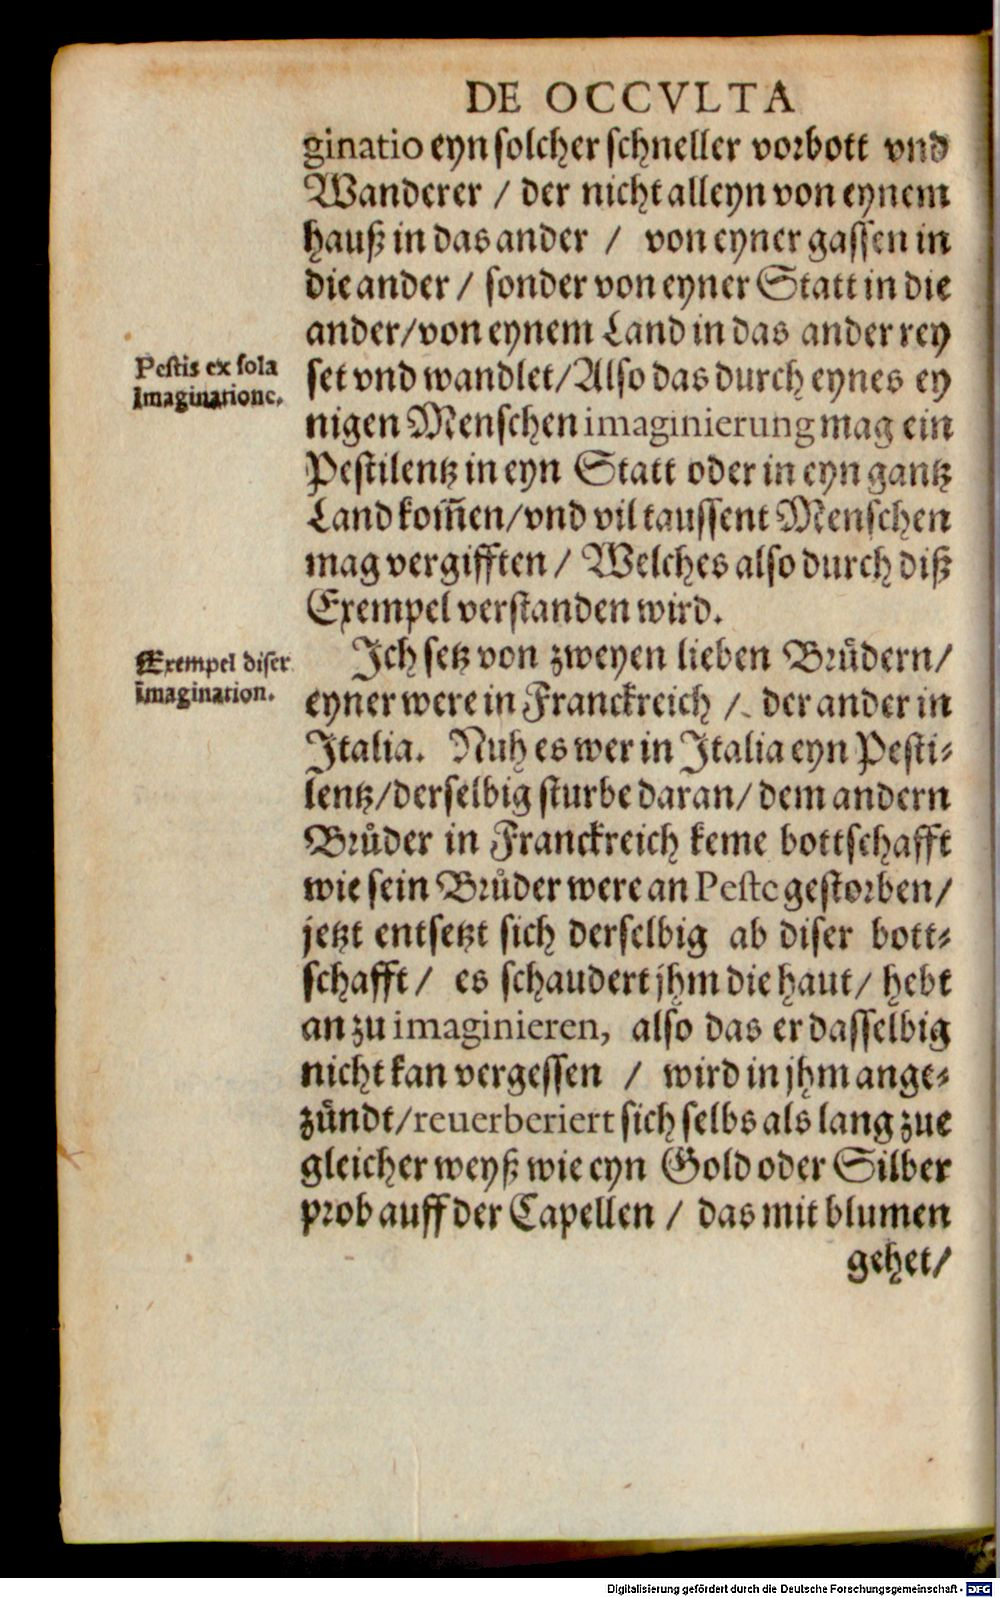 DE OCCVLTA
ginatio eyn solcher schneller vorbott vnd
Wanderer / der nicht alleyn von eynem
hauß in das ander / von eyner gassen in
die ander / sonder von eyner Statt in die
ander/von eynem Land in das ander rey
Pestis ex sola
Imaginatione.
set vnd wandlet/Also das durch eynes ey
nigen Menschen imaginierung mag ein
Pestilentz in eyn Statt oder in eyn gantz
Land kom̃en/vnd vil taussent Menschen
mag vergifften / Welches also durch diß
Exempel verstanden wird.
Exempel diser
imagination.
Ich setz von zweyen lieben Brůdern/
eyner were in Franckreich / der ander in
Italia. Nuh es wer in Italia eyn Pesti-
lentz/derselbig sturbe daran/dem andern
Brůder in Franckreich keme bottschafft
wie sein Brůder were an Peste gestorben/
jetzt entsetzt sich derselbig ab diser bott-
schafft / es schaudert jhm die haut / hebt
an zu imaginieren, also das er dasselbig
nicht kan vergessen / wird in jhm ange-
zündt/reuerberiert sich selbs als lang zue
gleicher weyß wie eyn Gold oder Silber
prob auff der Capellen / das mit blumen
gehet/
Digitalisierung gefördert durch die Deutsche Forschungsgemeinschaft - DFG